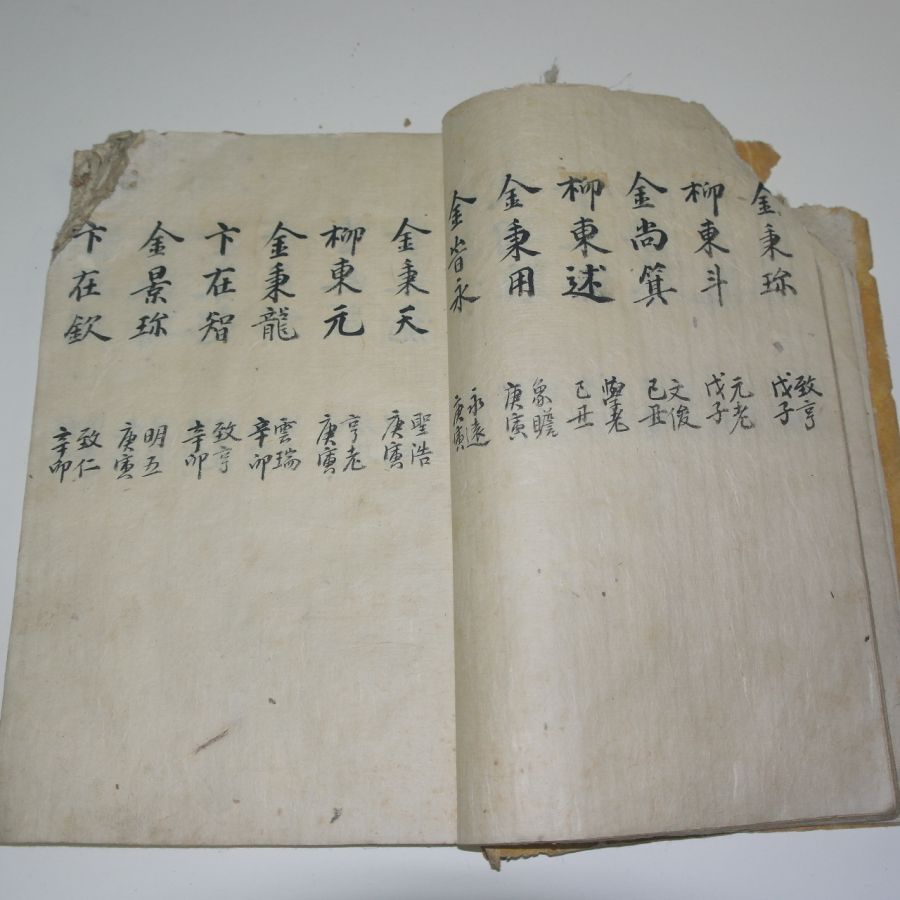 金秉珎
致亨
戊子
柳東斗
元老
戊子
金尚箕
文俊
己丑
柳東述
學老
己丑
金秉用
象瞻
庚寅
金耆永
永遠
庚寅
金秉天
聖浩
庚寅
柳東元
亨老
庚寅
金秉龍
雲瑞
辛卯
卞在智
致亨
辛卯
金景珎
明五
庚寅
卞在欽
致仁
辛卯